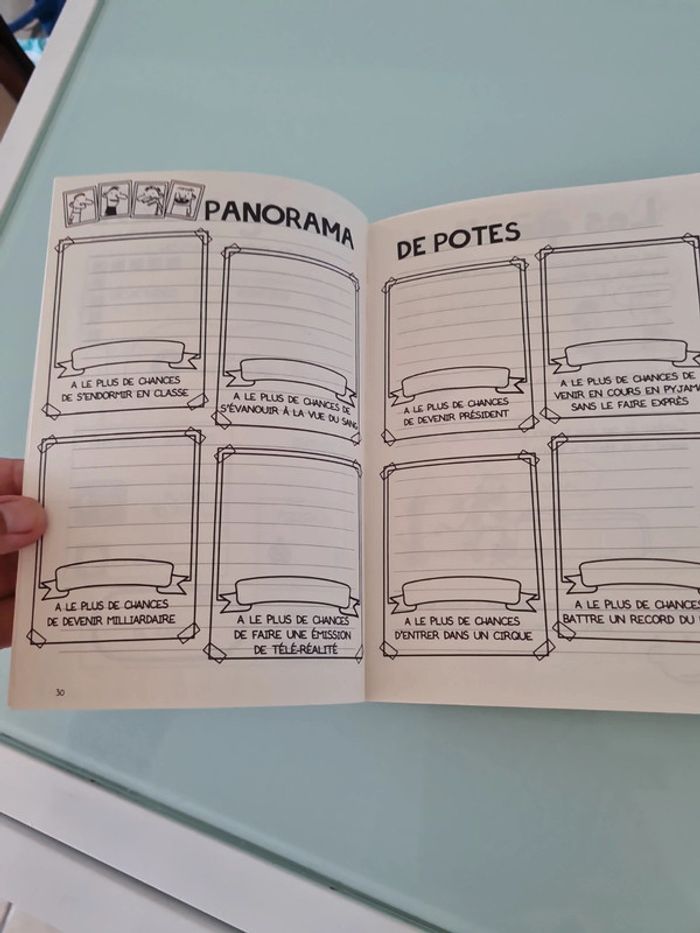 PANORAMA DE POTES
A LE PLUS DE CHANCES
DE S'ENDORMIR EN CLASSE
A LE PLUS DE CHANCES DE
S'ÉVANOUIR À LA VUE DU SANG
A LE PLUS DE CHANCES
DE DEVENIR MILLIARDAIRE
A LE PLUS DE CHANCES
DE FAIRE UNE ÉMISSION
DE TÉLÉ-RÉALITÉ
30
A LE PLUS DE CHANCES
DE DEVENIR PRÉSIDENT
A LE PLUS DE CHANCES DE
VENIR EN COURS EN PYJAMA
SANS LE FAIRE EXPRÈS
A LE PLUS DE CHANCES
D'ENTRER DANS UN CIRQUE
A LE PLUS DE CHANCES
BATTRE UN RECORD DU